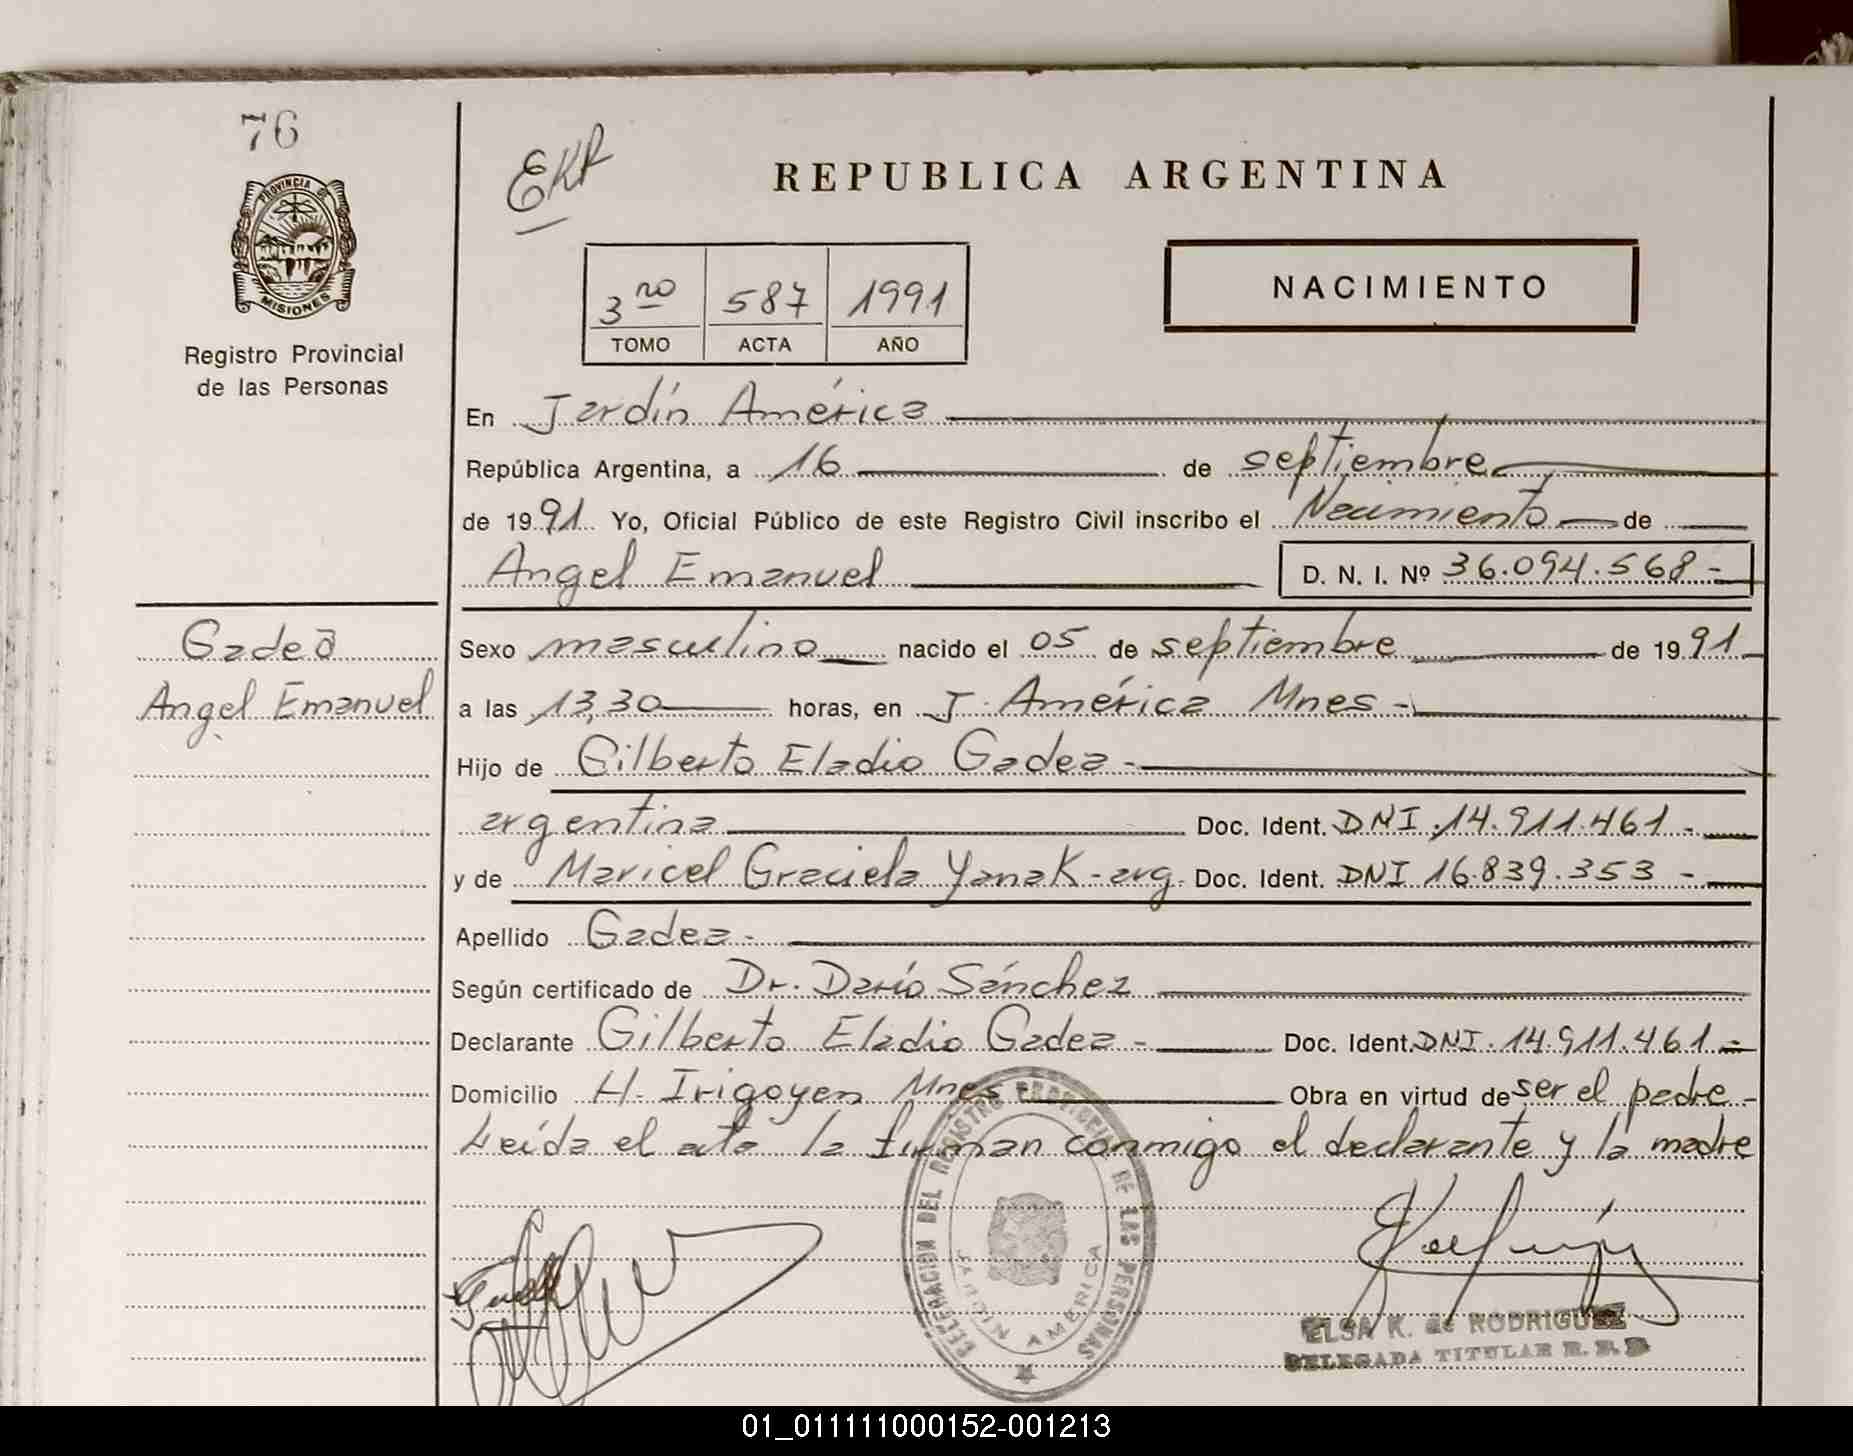 76
EKR
REPUBLICA ARGENTINA
PROVINCIA D
MISIONES
Registro Provincial
de las Personas
3ro 587 1991
TOMO ACTA AÑO
NACIMIENTO
En Jardín América
República Argentina, a 16 de septiembre
de 1991 Yo, Oficial Público de este Registro Civil inscribo el Nacimiento de
Angel Emanuel D. N. I. Nº 36.094.568-
Gadea
Angel Emanuel
Sexo masculino nacido el 05 de septiembre de 1991
a las 13,30 horas, en J. América Mnes -
Hijo de Gilberto Eladio Gadea -
argentina Doc. Ident. DNI 14.911.461 -
y de Maricel Graciela Yanak - arg. Doc. Ident. DNI 16.839.353 -
Apellido Gadea -
Según certificado de Dr. Darío Sánchez
Declarante Gilberto Eladio Gadea - Doc. Ident. DNI. 14.911.461 -
Domicilio H. Irigoyen Mnes - Obra en virtud de ser el padre -
Leída el acta la firman conmigo el declarante y la madre
DELEGACION DEL REGISTRO PROVINCIAL DE LAS PERSONAS
JARDIN AMERICA
ELSA K. de RODRIGUEZ
DELEGADA TITULAR R. P. P
01_011111000152-001213